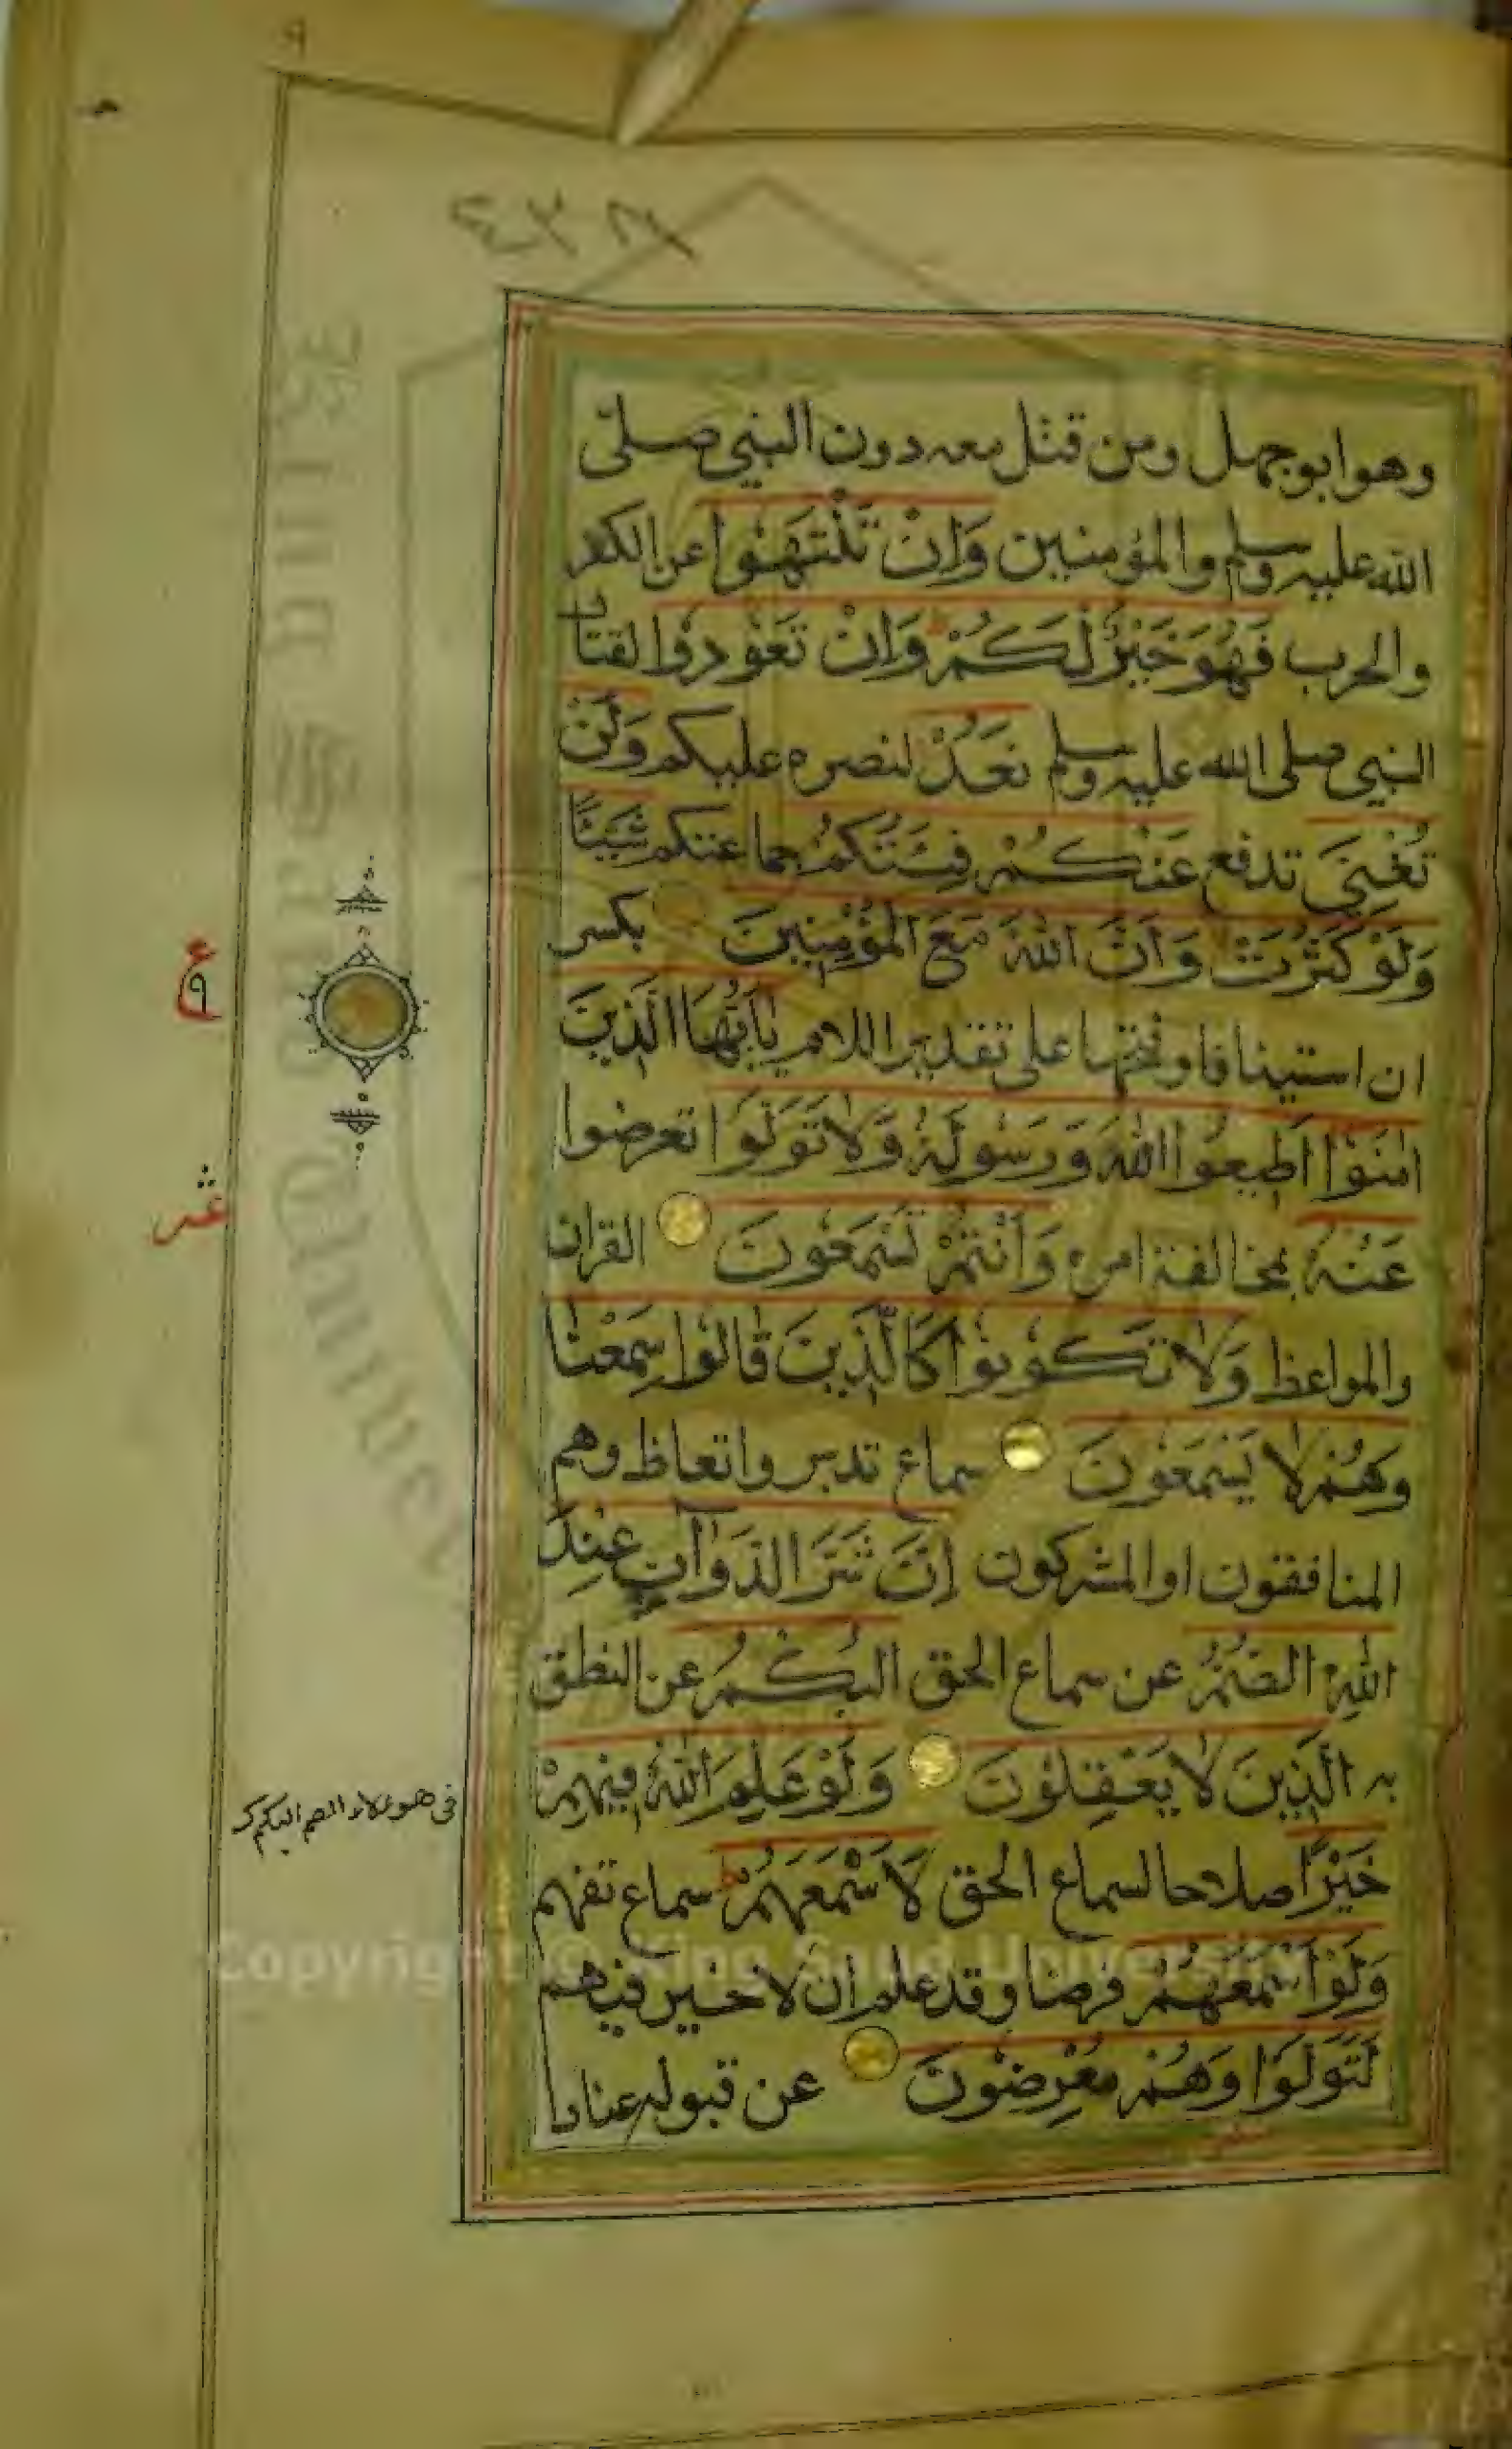 ٩
٤٣٨
وهو ابو جهل ومن قتل معه دون النبي صلى
الله عليه وسلم والمؤمنين وَاِنْ تَنْتَهُوا عن الكفر
والحرب فَهُوَ خَيْرٌ لَكُمْ وَاِنْ تَعُودُوا لقتال
النبي صلى الله عليه وسلم نَعُدْ لنصره عليكم وَلَنْ
تُغْنِيَ تدفع عَنْكُمْ فِئَتُكُمْ جماعتكم شَيْئًا
وَلَوْ كَثُرَتْ وَاَنَّ اللهَ مَعَ الْمُؤْمِنِينَ بكسر
ان استينافا وفتحها على تقدير اللام يٰاَيُّهَا الَّذِينَ
اٰمَنُوْا اَطِيعُوا اللهَ وَرَسُولَهُ وَلَا تَوَلَّوْا تعرضوا
عَنْهُ بمخالفة امره وَاَنْتُمْ تَسْمَعُونَ القران
والمواعظ وَلَا تَكُونُوا كَالَّذِينَ قَالُوا سَمِعْنَا
وَهُمْ لَا يَسْمَعُونَ سماع تدبر واتعاظ وهم
المنافقون او المشركون اِنَّ شَرَّ الدَّوَآبِّ عِنْدَ
اللهِ الصُّمُّ عن سماع الحق الْبُكْمُ عن النطق
به الَّذِينَ لَا يَعْقِلُونَ وَلَوْ عَلِمَ اللهُ فِيهِمْ
خَيْرًا صلاحا لسماع الحق لَاَسْمَعَهُمْ سماع تفهم
وَلَوْ اَسْمَعَهُمْ فرضا وقد علم ان لا خير فيهم
لَتَوَلَّوْا وَهُمْ مُعْرِضُونَ عن قبوله عنادا
ع
٩
عشر
في هؤلاء الصم البكم
King Saud University
Copyright © King Saud University